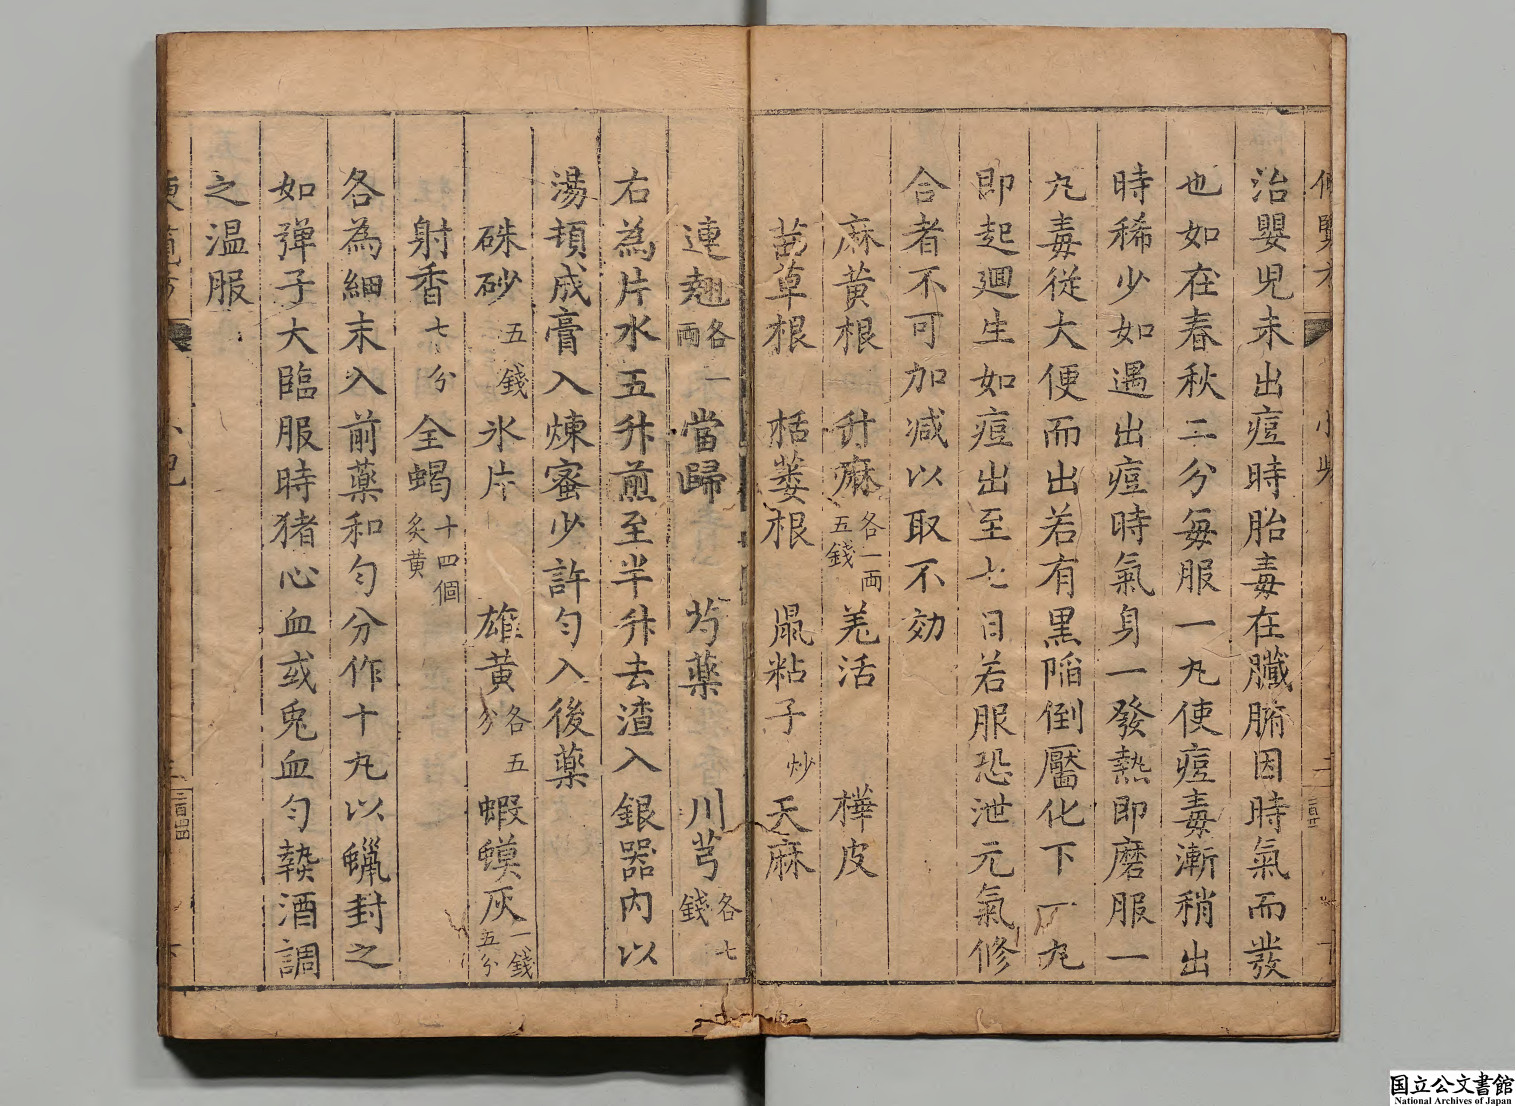 治嬰兒未出痘時胎毒在臟腑因時氣而發
也如在春秋二分每服一丸使痘毒漸稍出
時稀少如遇出痘時氣身一發熱即磨服一
丸毒從大便而出若有黑陷倒靨化下一丸
即起廻生如痘出至七日若服恐泄元氣修
合者不可加减以取不効
麻黄根 升麻各一兩五錢 羌活 樺皮
苗草根 栝蔞根 鼠粘子炒 天麻
連翹各一兩 當歸 芍藥 川芎各七錢
右為片水五升煎至半升去渣入銀器内以
湯頓成膏入煉蜜少許匀入後藥
硃砂五錢 氷片 雄黄各五分 蝦蟆灰一錢五分
射香七分 全蝎十四個炙黄
各為細末入前藥和匀分作十丸以蠟封之
如彈子大臨服時猪心血或兎血匀㷅酒調
之温服
国立公文書館
National Archives of Japan